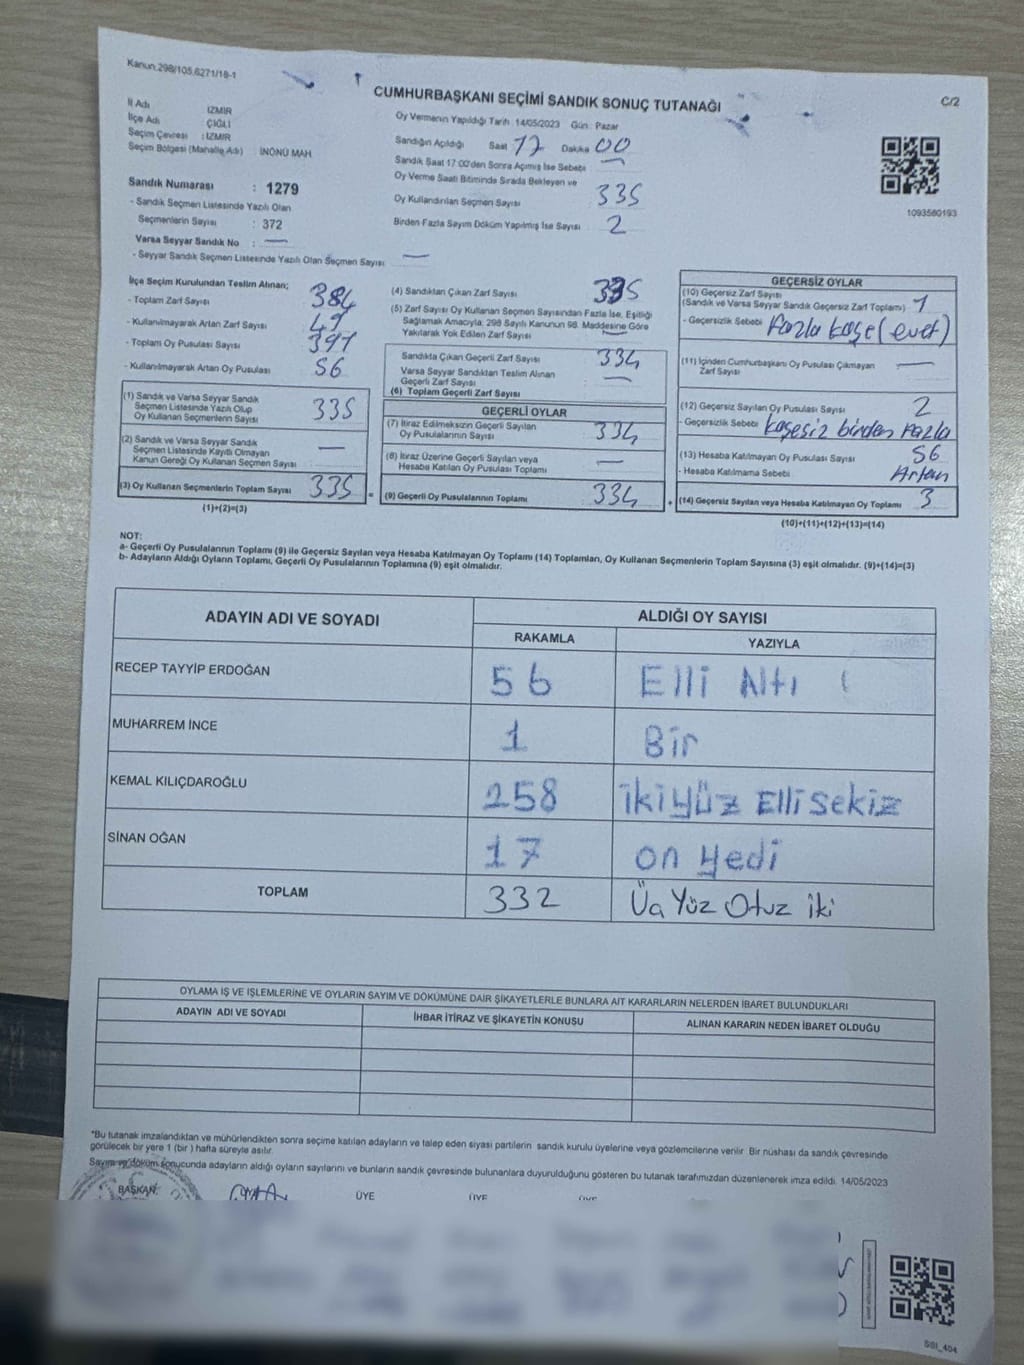 Kanun.298/105,6271/18-1
C/2
CUMHURBAŞKANI SEÇİMİ SANDIK SONUÇ TUTANAĞI
İl Adı İZMİR
İlçe Adı ÇİĞLİ
Seçim Çevresi : İZMİR
Seçim Bölgesi (Mahalle Adı) : İNÖNÜ MAH
Sandık Numarası : 1279
- Sandık Seçmen Listesinde Yazılı Olan
Seçmenlerin Sayısı : 372
Varsa Seyyar Sandık No : —
- Seyyar Sandık Seçmen Listesinde Yazılı Olan Seçmen Sayısı —
Oy Vermenin Yapıldığı Tarih : 14/05/2023 Gün : Pazar
Sandığın Açıldığı Saat 17 Dakika 00
Sandık Saat 17:00'den Sonra Açımış İse Sebebi —
Oy Verme Saati Bitiminde Sırada Bekleyen ve
Oy Kullandırılan Seçmen Sayısı 335
Birden Fazla Sayım Döküm Yapılmış İse Sayısı 2
1093560193
İlçe Seçim Kurulundan Teslim Alınan;
- Toplam Zarf Sayısı 384
- Kullanılmayarak Artan Zarf Sayısı 49
- Toplam Oy Pusulası Sayısı 391
- Kullanılmayarak Artan Oy Pusulası 56
(1) Sandık ve Varsa Seyyar Sandık
Seçmen Listesinde Yazılı Olup
Oy Kullanan Seçmenlerin Sayısı 335
(2) Sandık ve Varsa Seyyar Sandık
Seçmen Listesinde Kayıtlı Olmayan
Kanun Gereği Oy Kullanan Seçmen Sayısı —
(3) Oy Kullanan Seçmenlerin Toplam Sayısı 335
(1)+(2)=(3)
(4) Sandıktan Çıkan Zarf Sayısı 335
(5) Zarf Sayısı Oy Kullanan Seçmen Sayısından Fazla İse, Eşitliği
Sağlamak Amacıyla; 298 Sayılı Kanunun 98. Maddesine Göre
Yakılarak Yok Edilen Zarf Sayısı —
Sandıkta Çıkan Geçerli Zarf Sayısı 334
Varsa Seyyar Sandıktan Teslim Alınan
Geçerli Zarf Sayısı —
(6) Toplam Geçerli Zarf Sayısı
GEÇERLİ OYLAR
(7) İtiraz Edilmeksizin Geçerli Sayılan
Oy Pusulalarının Sayısı 334
(8) İtiraz Üzerine Geçerli Sayılan veya
Hesaba Katılan Oy Pusulası Toplamı —
= (9) Geçerli Oy Pusulalarının Toplamı 334
GEÇERSİZ OYLAR
(10) Geçersiz Zarf Sayısı
(Sandık ve Varsa Seyyar Sandık Geçersiz Zarf Toplamı) 1
- Geçersizlik Sebebi Fazla kaşe (evet)
(11) İçinden Cumhurbaşkanı Oy Pusulası Çıkmayan
Zarf Sayısı —
(12) Geçersiz Sayılan Oy Pusulası Sayısı 2
- Geçersizlik Sebebi kaşesiz birden fazla
(13) Hesaba Katılmayan Oy Pusulası Sayısı 56
- Hesaba Katılmama Sebebi Artan
+ (14) Geçersiz Sayılan veya Hesaba Katılmayan Oy Toplamı 3
(10)+(11)+(12)+(13)=(14)
NOT:
a- Geçerli Oy Pusulalarının Toplamı (9) ile Geçersiz Sayılan veya Hesaba Katılmayan Oy Toplamı (14) Toplamları, Oy Kullanan Seçmenlerin Toplam Sayısına (3) eşit olmalıdır. (9)+(14)=(3)
b- Adayların Aldığı Oyların Toplamı, Geçerli Oy Pusulalarının Toplamına (9) eşit olmalıdır.
ADAYIN ADI VE SOYADI ALDIĞI OY SAYISI
RAKAMLA YAZIYLA
RECEP TAYYİP ERDOĞAN 56 Elli Altı
MUHARREM İNCE 1 Bir
KEMAL KILIÇDAROĞLU 258 ikiyüz Elli sekiz
SİNAN OĞAN 17 on yedi
TOPLAM 332 Üa Yüz Otuz iki
OYLAMA İŞ VE İŞLEMLERİNE VE OYLARIN SAYIM VE DÖKÜMÜNE DAİR ŞİKAYETLERLE BUNLARA AİT KARARLARIN NELERDEN İBARET BULUNDUKLARI
ADAYIN ADI VE SOYADI İHBAR İTİRAZ VE ŞİKAYETİN KONUSU ALINAN KARARIN NEDEN İBARET OLDUĞU
*Bu tutanak imzalandıktan ve mühürlendikten sonra seçime katılan adayların ve talep eden siyasi partilerin sandık kurulu üyelerine veya gözlemcilerine verilir. Bir nüshası da sandık çevresinde
görülecek bir yere 1 (bir ) hafta süreyle asılır.
Sayım ve döküm sonucunda adayların aldığı oyların sayılarını ve bunların sandık çevresinde bulunanlara duyurulduğunu gösteren bu tutanak tarafımızdan düzenlenerek imza edildi. 14/05/2023
BAŞKAN: ÜYE ÜYE
SSI_404